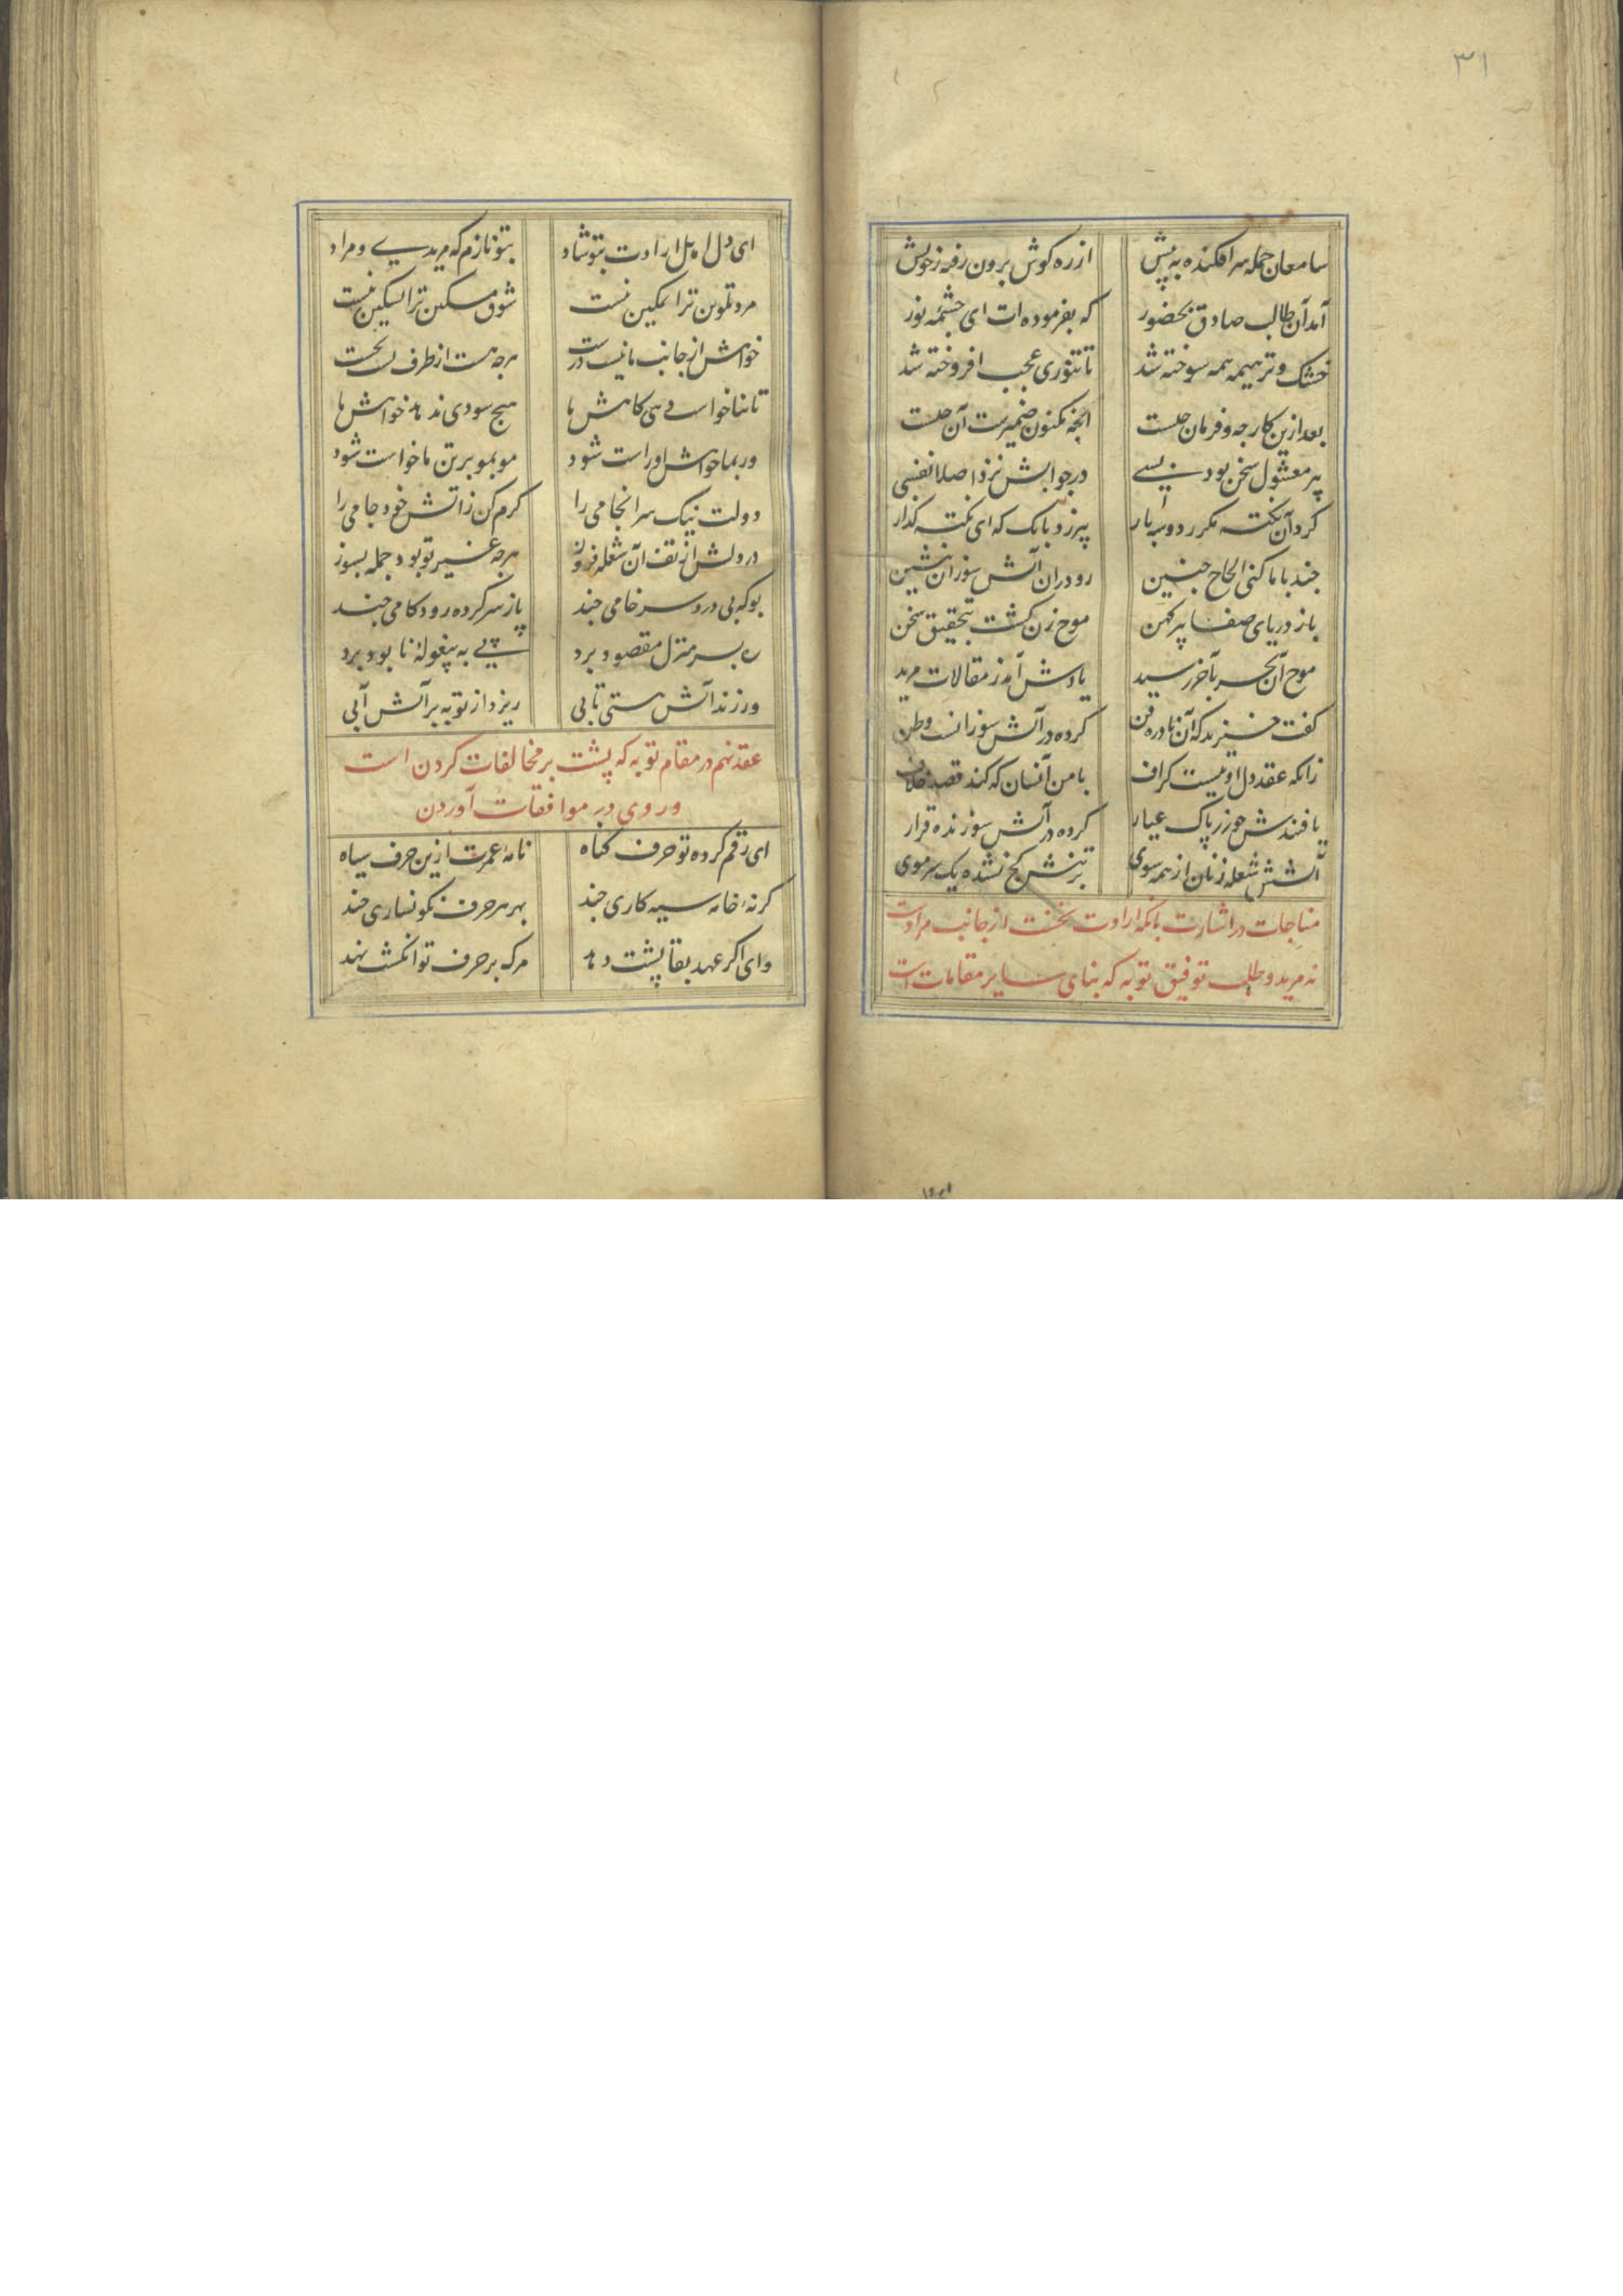 ۳۱
سامعان جمله سر افکنده به پیش
از ره کوش برون رفته ز خویش
آمد آن طالب صادق بحضور
که بفرموده ات ای چشمه نور
خشک و تر هیمه همه سوخته شد
تا تنوری عجب افروخته شد
بعد ازین کار چه و فرمان چیست
آنچه مکنون ضمیرست آن چیست
پیر مشغول سخن بود بسی
در جوابش نزد اصلا نفسی
کرد آن نکته مکرر دو سه بار
پیر زد بانک که ای نکته کذار
چند با ما کنی الحاح چنین
رو در ان آتش سوزان بنشین
باز دریای صفا پیر کهن
موج زن کشت بتحقیق سخن
موج آن بحر بآخر رسید
یادش آمد ز مقالات مرید
کفت خیزید که آن نادره فن
کرده در آتش سوزانست وطن
زانکه عقد دل او نیست کزاف
با من آنسان که کند قصد خلاف
یافتندش چو زر پاک عیار
کرده در آتش سوزنده قرار
آتشش شعله زنان از همه سوی
بر تنش کج نشده یک سر موی
مناجات در اشارت بانکه ارادت نخست از جانب مرادست
نه مرید و طلب توفیق توبه که بنای سایر مقامات است
ای دل اهل ارادت بتو شاد
بتو نازم که مریدی و مراد
مرد تلوین ترا تمکین نیست
شوق مسکین ترا تسکین نیست
خواهش از جانب ما نیست درست
هرچه هست از طرف تست نخست
تا نخواهی دهی کاهش ما
هیچ سودی ندهد خواهش ما
ور بما خواهش او راست شود
مو بمو بر تن ما خواست شود
دولت نیک سرانجامی را
کرم کن زاتش خود جامی را
در دلش از تف آن شعله فروز
هرچه غیر تو بود جمله بسوز
بو که بی درد سر خامی چند
پا ز سر کرده رود کامی چند
ره بسر منزل مقصود برد
پی به پیغوله نابود برد
ور زند آتش هستی تابی
ریزد از توبه بر آتش آبی
عقد نهم در مقام توبه که پشت بر مخالفات کردن است
و روی در موافقات آوردن
ای رقم کرده تو حرف کناه
نامه عمرت ازین حرف سیاه
کرنه خامه سیه کاری چند
بهر هر حرف نکونساری چند
وای اکر عهد بقا پشت دهد
مرک بر حرف تو انکشت نهد